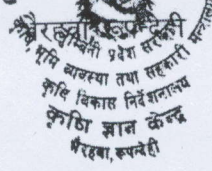 लुम्बिनी प्रदेश सरकार
कृषि, भूमि व्यवस्था तथा सहकारी मन्त्रालय
कृषि विकास निर्देशनालय
कृषि ज्ञान केन्द्र
भैरहवा, रूपन्देही